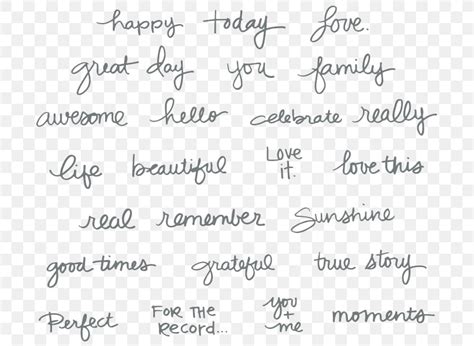 happy today love.
great day you family
awesome hello celebrate really
life beautiful Love it. love this
real remember Sunshine
good times grateful true story
Perfect FOR THE RECORD... you + me moments